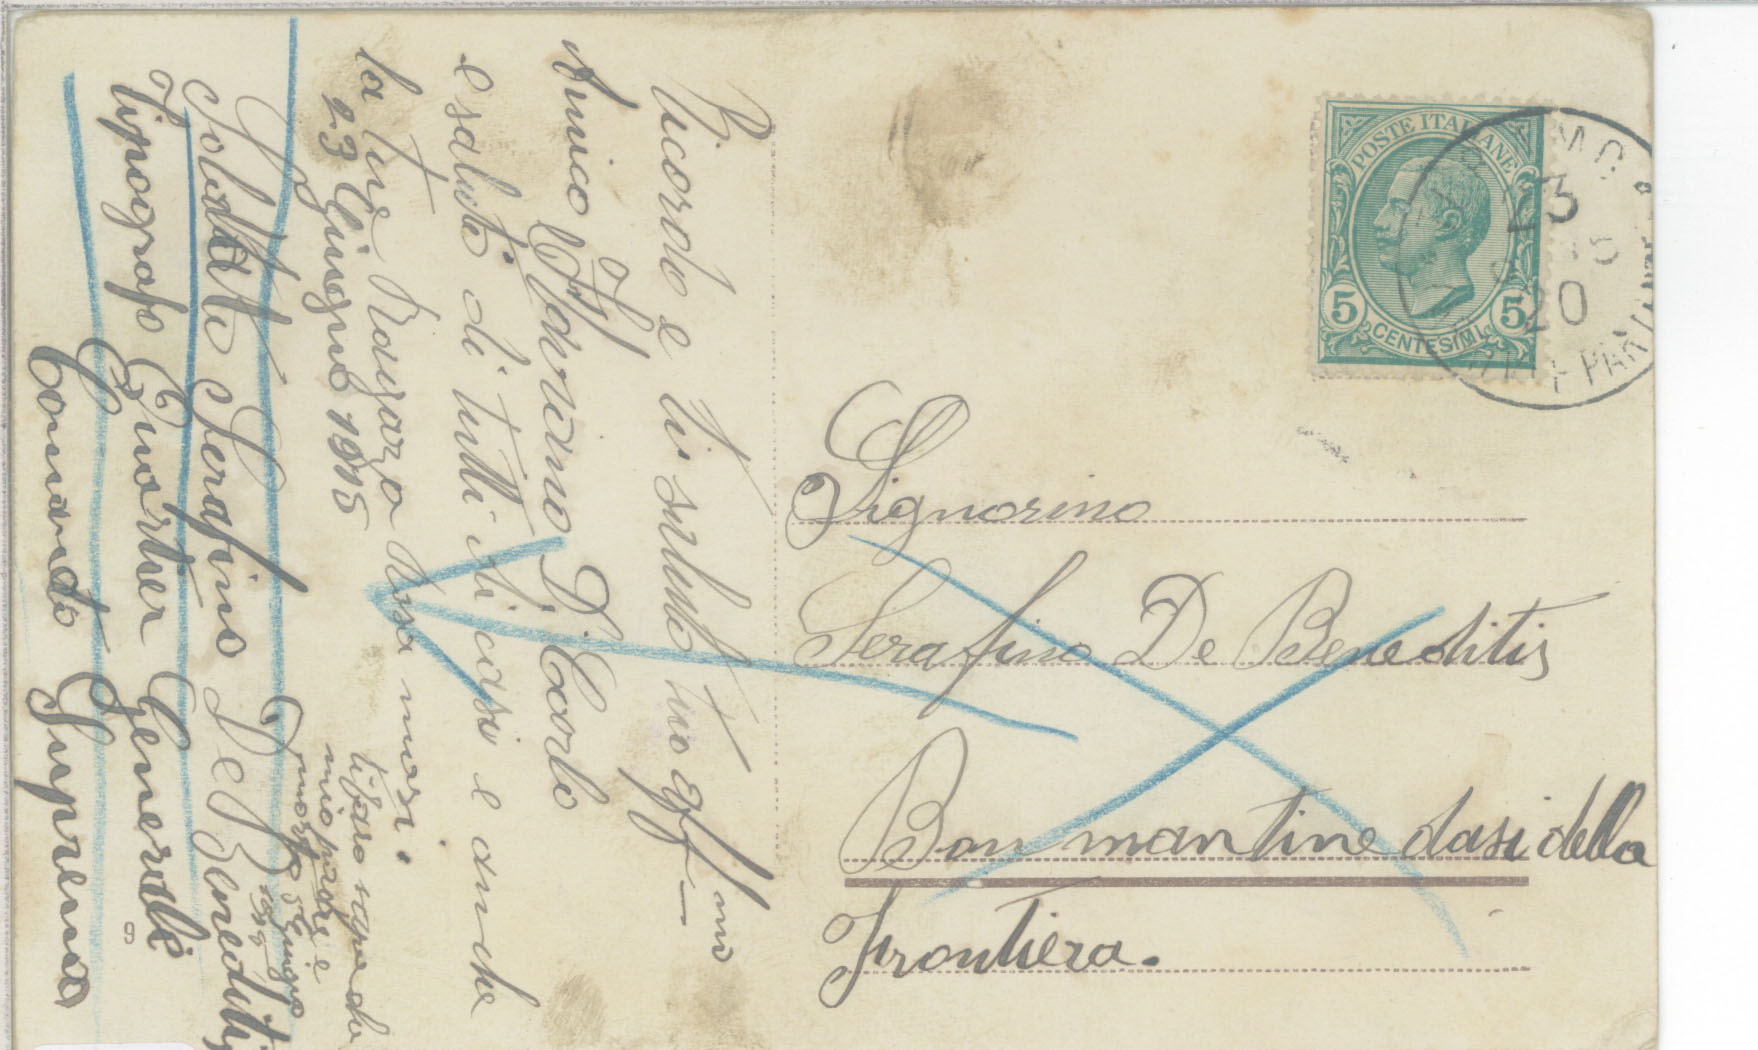 Ricordo e ti saluto tuo aff—mo
Amico Adornino Di Carlo
e saluti di tutti di casi e anche
la tua Ragazza
23 Giugno 1915
ti faro sapra che
mio padre e
morto
Soldato Serafino De Beneditis
Tipografo Quartier Generale
Comando Supremo
9
POSTE ITALIANE
5 CENTESIMI 5
23
20
Signorino
Serafino De Beneditis
mantine dasi della
Frontiera.